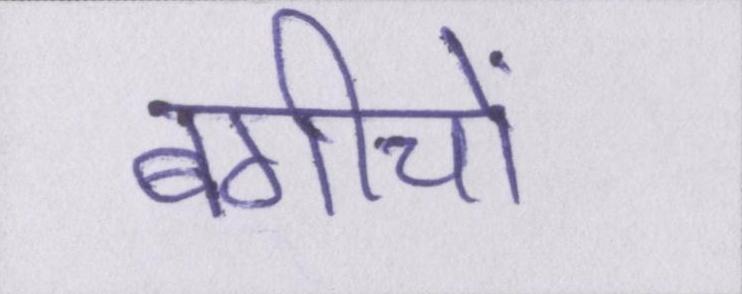 बगीचों